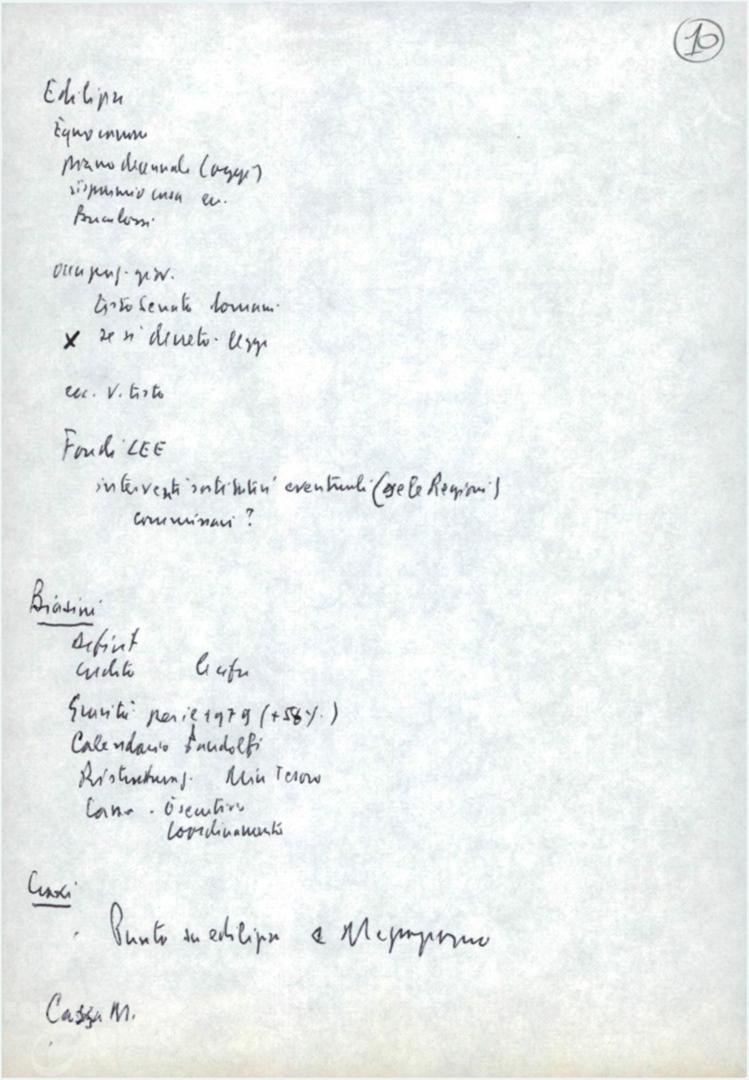 10
Edilizia
Equo canone
piano decennale (oggi)
risparmio casa ecc.
Bucalossi
occup. giov.
testo Senato domani
x se sì decreto-legge
ecc. v. testo
Fondi CEE
interventi sostitutivi eventuali (se le Regioni)
commissari?
Biasini
Deficit
credito le cifre
Gravità per il 1979 (+58%)
Calendario Pandolfi
Ristrutturaz. Min Tesoro
Cassa - Esecutivo
Coordinamento
Craxi
Punto su edilizia e Mezzogiorno
Cassa M.